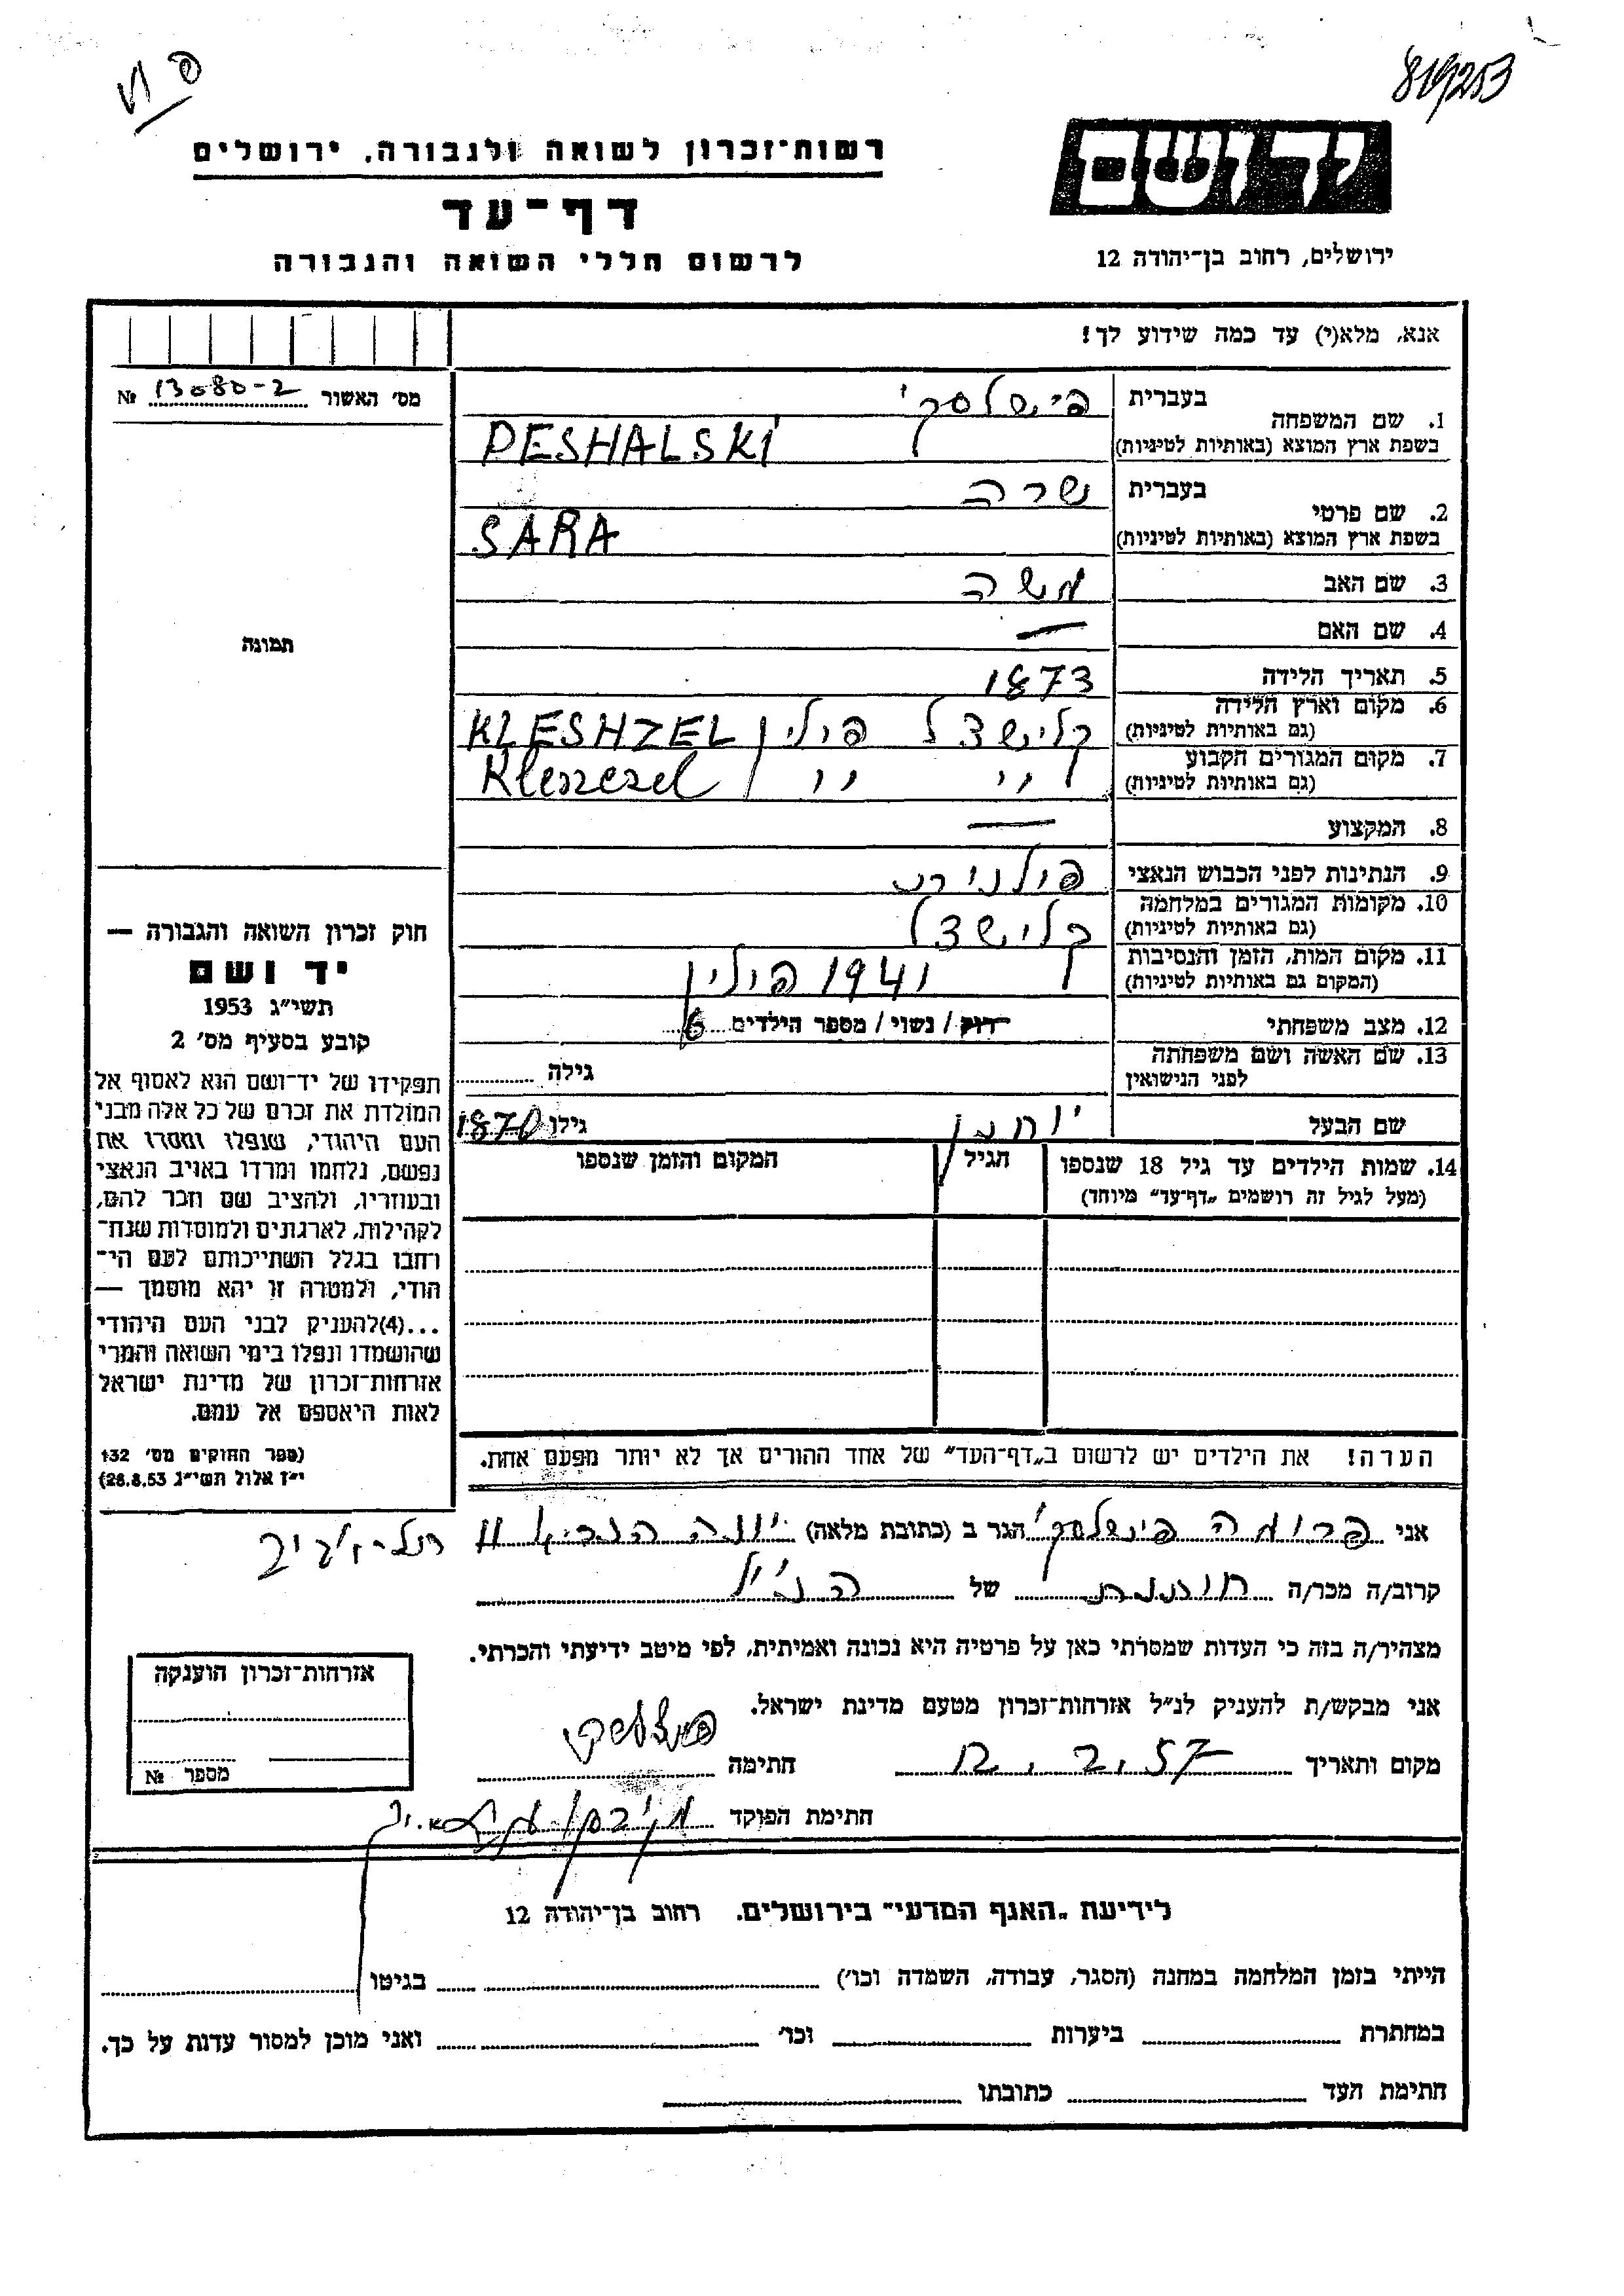 819253
יד ושם
רשות־זכרון לשואה ולגבורה, ירושלים
דף־עד
לרשום חללי השואה והגבורה
ירושלים, רחוב בן־יהודה 12
אנא, מלא(י) עד כמה שידוע לך!
מס׳ האשור 13080-2 №
תמונה
1. שם המשפחה בעברית פישלסקי
בשפת ארץ המוצא (באותיות לטיניות) PESHALSKI
2. שם פרטי בעברית שרה
בשפת ארץ המוצא (באותיות לטיניות) SARA
3. שם האב משה
4. שם האם —
5. תאריך הלידה 1873
6. מקום וארץ הלידה (גם באותיות לטיניות) קלישצל פולין KLESHZEL
7. מקום המגורים הקבוע (גם באותיות לטיניות) ״ ״ Kleszezel
8. המקצוע —
9. הנתינות לפני הכבוש הנאצי פולנית
10. מקומות המגורים במלחמה (גם באותיות לטיניות) קלישצל
11. מקום המות, הזמן והנסיבות (המקום גם באותיות לטיניות) 1941 פולין
12. מצב משפחתי רווק / נשוי / מספר הילדים 6
13. שם האשה ושם משפחתה לפני הנישואין גילה
שם הבעל יוחנן גילו 1870
14. שמות הילדים עד גיל 18 שנספו הגיל המקום והזמן שנספו
(מעל לגיל זה רושמים „דף־עד״ מיוחד)
חוק זכרון השואה והגבורה —
יד ושם
תשי״ג 1953
קובע בסעיף מס׳ 2
תפקידו של יד־ושם הוא לאסוף אל
המולדת את זכרם של כל אלה מבני
העם היהודי, שנפלו ומסרו את
נפשם, נלחמו ומרדו באויב הנאצי
ובעוזריו, ולהציב שם וזכר להם,
לקהילות, לארגונים ולמוסדות שנח־
רבו בגלל השתייכותם לעם הי־
הודי, ולמטרה זו יהא מוסמך —
...(4)להעניק לבני העם היהודי
שהושמדו ונפלו בימי השואה והמרי
אזרחות־זכרון של מדינת ישראל
לאות היאספם אל עמם.
(ספר החוקים מס׳ 132
י״ז אלול תשי״ג 28.8.53)
הערה! את הילדים יש לרשום ב„דף־העד״ של אחד ההורים אך לא יותר מפעם אחת.
אני פרומה פישלסקי הגר ב (כתובת מלאה) יונה הנביא 11 תל-אביב
קרוב/ה מכר/ה חותנת של הנ״ל
מצהיר/ה בזה כי העדות שמסרתי כאן על פרטיה היא נכונה ואמיתית, לפי מיטב ידיעתי והכרתי.
אני מבקש/ת להעניק לנ״ל אזרחות־זכרון מטעם מדינת ישראל.
מקום ותאריך 12.2.57 חתימה
חתימת הפוקד
אזרחות־זכרון הוענקה
מספר №
לידיעת „האגף המדעי״ בירושלים. רחוב בן־יהודה 12
הייתי בזמן המלחמה במחנה (הסגר, עבודה, השמדה וכו׳) בגיטו
במחתרת ביערות וכו׳ ואני מוכן למסור עדות על כך.
חתימת העד כתובתו